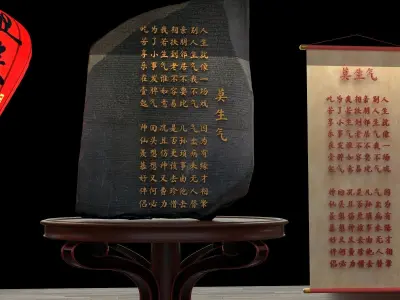 莫生气
人生就像一场戏
别人生气我不气
亲朋邻居不要比
相扶到老不容易
我若生气谁如意
为了小事发脾气
吃苦享乐在一起
因为有缘才相聚
气出病来无人替
儿孙琐事由他去
是否更该去珍惜
况且伤神又费力
回头想想又何必
神仙羡慕好伴侣
莫生气
人生就像一场戏
别人生气我不气
亲朋邻居不要比
相扶到老不容易
我若生气谁如意
为了小事发脾气
吃苦享乐在一起
因为有缘才相聚
气出病来无人替
儿孙琐事由他去
是否更该去珍惜
况且伤神又费力
回头想想又何必
神仙羡慕好伴侣